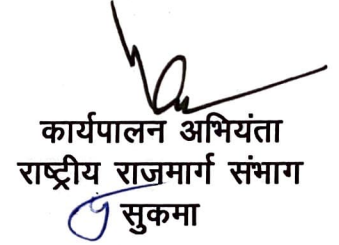 कार्यपालन अभियंता
राष्ट्रीय राजमार्ग संभाग
सुकमा